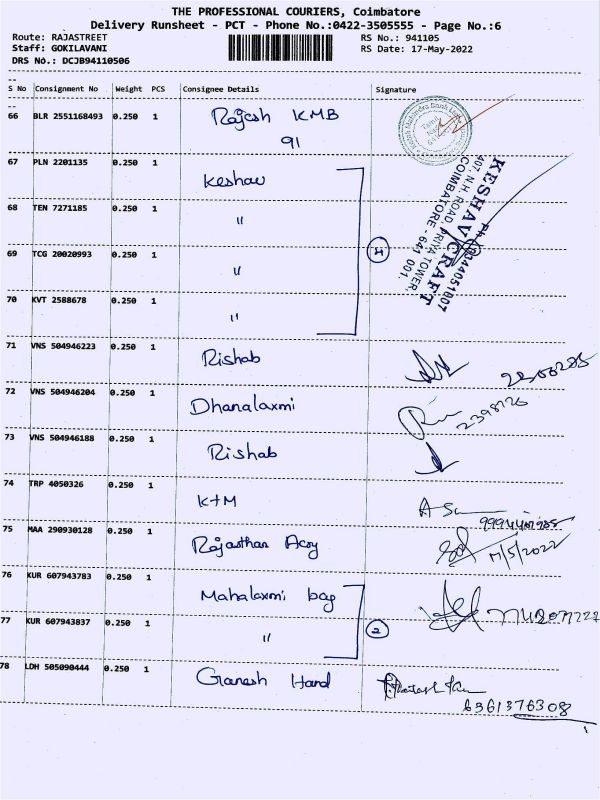 THE PROFESSIONAL COURIERS, Coimbatore
Delivery Runsheet - PCT - Phone No.:0422-3505555 - Page No.:6
Route: RAJASTREET
RS No.: 941105
Staff: GOKILAVANI
RS Date: 17-May-2022
DRS No.: DCJB94110506
S No Consignment No Weight PCS Consignee Details Signature
66 BLR 2551168493 0.250 1 Rajesh KMB
91
67 PLN 2201135 0.250 1 Keshav
68 TEN 7271185 0.250 1 "
69 TCG 20020993 0.250 1 "
4
70 KVT 2588678 0.250 1 "
KESHAV CRAFT
407, N.H. ROAD, PRIYA TOWER,
COIMBATORE - 641 001.
71 VNS 504946223 0.250 1 Rishab
72 VNS 504946204 0.250 1 Dhanalaxmi
2398726
73 VNS 504946188 0.250 1 Rishab
74 TRP 4050326 0.250 1 KTM
75 MAA 290930128 0.250 1 Rajasthan Acry
17/5/2022
76 KUR 607943783 0.250 1 Mahalaxmi bag
77 KUR 607943837 0.250 1 "
2
78 LDH 505090444 0.250 1 Ganesh Hand
6361376308